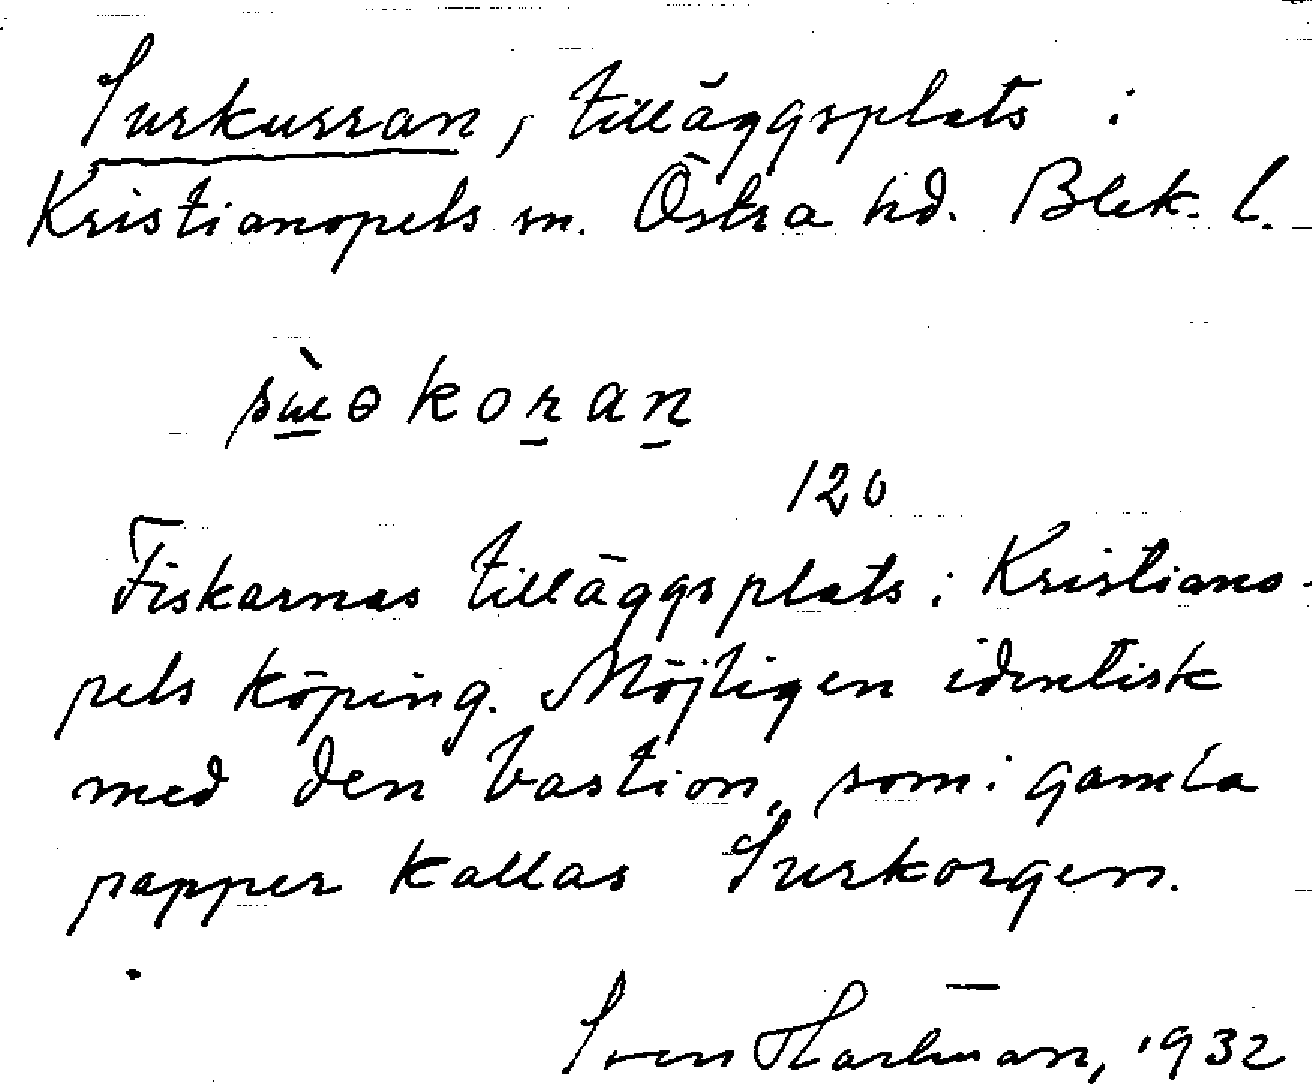 Surkurran, tilläggsplats i
Kristianopels sn. Östra hd. Blek. l.
120
Fiskarnas tilläggsplats i Kristiano-
pels köping. Möjligen identisk
med den bastion, som i gamla
papper kallas Surkorgen.
Sven Hartman, 1932